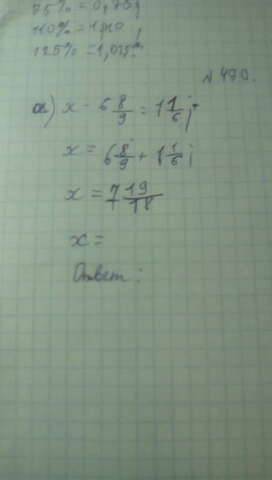 75% = 0,75;
110% = 1,10;
125% = 1,025
№ 470.
а) x - 6 8/9 = 1 1/6;
x = 6 8/9 + 1 1/6;
x = 7 19/18
x =
Ответ: